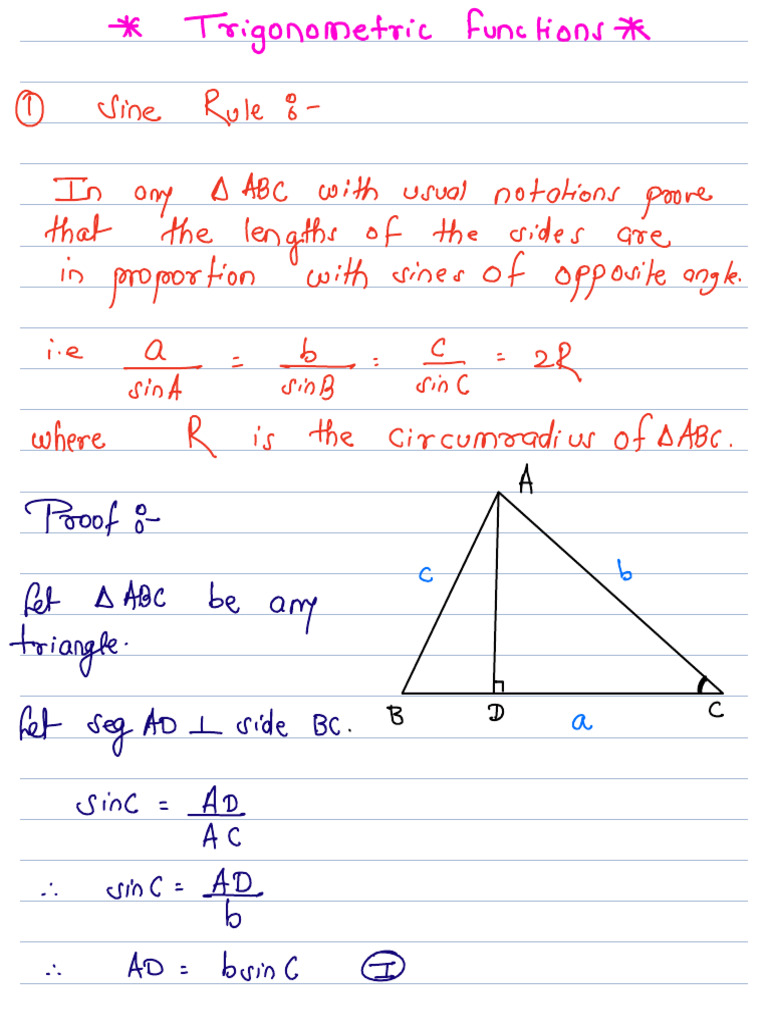 * Trigonometric functions *
① Sine Rule :-
In any △ ABC with usual notations prove
that the lengths of the sides are
in proportion with sines of opposite angle.
i.e a/sinA = b/sinB = c/sinC = 2R
where R is the circumradius of △ABC.
Proof :-
A
c
b
Let △ ABC be any
triangle.
B
D
a
C
Let seg AD ⊥ side BC.
sinC = AD/AC
∴ sinC = AD/b
∴ AD = bsinC Ⓘ